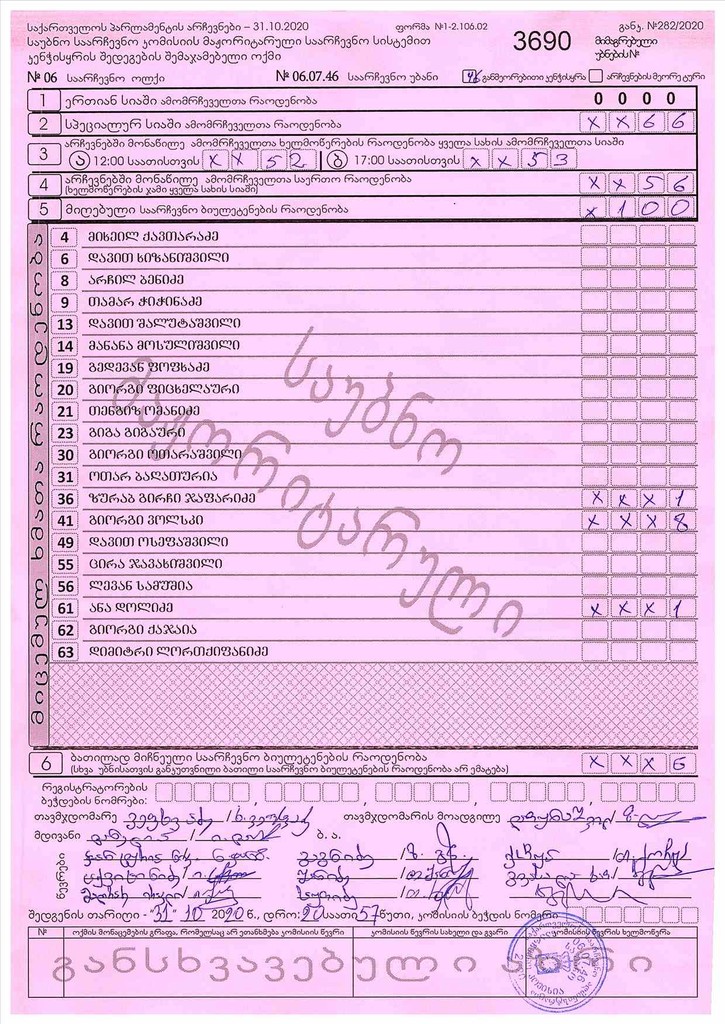 საქართველოს პარლამენტის არჩევნები – 31.10.2020 ფორმა №1-2.106.02 განკ. №282/2020
საუბნო საარჩევნო კომისიის მაჟორიტარული საარჩევნო სისტემით 3690 მიმაგრებული
კენჭისყრის შედეგების შემაჯამებელი ოქმი უბნების №
№ 06 საარჩევნო ოლქი № 06.07.46 საარჩევნო უბანი განმეორებითი კენჭისყრა არჩევნების მეორე ტური
1 ერთიან სიაში ამომრჩეველთა რაოდენობა 0 0 0 0
2 სპეციალურ სიაში ამომრჩეველთა რაოდენობა X X 6 6
არჩევნებში მონაწილე ამომრჩეველთა ხელმოწერების რაოდენობა ყველა სახის ამომრჩეველთა სიაში
3 ა 12:00 საათისთვის X X 5 2 ბ 17:00 საათისთვის X X 5 3
4 არჩევნებში მონაწილე ამომრჩეველთა საერთო რაოდენობა X X 5 6
(ხელმოწერების ჯამი ყველა სახის სიაში)
5 მიღებული საარჩევნო ბიულეტენების რაოდენობა X 1 0 0
მიცემულ ხმათა რაოდენობა
4 მიხეილ ქავთარაძე
6 დავით ხიზანიშვილი
8 არჩილ ბენიძე
9 თამარ ჭიჭინაძე
13 დავით შალუტაშვილი
14 მანანა მოსულიშვილი
19 გედევან ფოფხაძე
20 გიორგი ფიცხელაური
21 თენგიზ ომანიძე
23 გიგა გიგაური
30 გიორგი ოთარაშვილი
31 ოთარ ბაღათურია
36 ზურაბ გირჩი ჯაფარიძე X X X 1
41 გიორგი ვოლსკი X X X 8
49 დავით ოსეფაშვილი
55 ცირა ჯავახიშვილი
56 ლევან სამუშია
61 ანა დოლიძე X X X 1
62 გიორგი ქაჯაია
63 დიმიტრი ლორთქიფანიძე
საუბნო
მაჟორიტარული
6 ბათილად მიჩნეული საარჩევნო ბიულეტენების რაოდენობა X X X 6
(სხვა უბნისათვის განკუთვნილი ბათილი საარჩევნო ბიულეტენების რაოდენობა არ ემატება)
რეგისტრატორების
ბეჭდების ნომრები:
თავმჯდომარე თავმჯდომარის მოადგილე
მდივანი ბ. ა.
წევრები
შედგენის თარიღი - "31" 10 2020 წ., დრო: 20 საათი 57 წუთი, კომისიის ბეჭდის ნომერი
№ ოქმის მონაცემების გრაფა, რომელსაც არ ეთანხმება კომისიის წევრი კომისიის წევრის სახელი და გვარი კომისიის წევრის ხელმოწერა
განსხვავებული აზრი